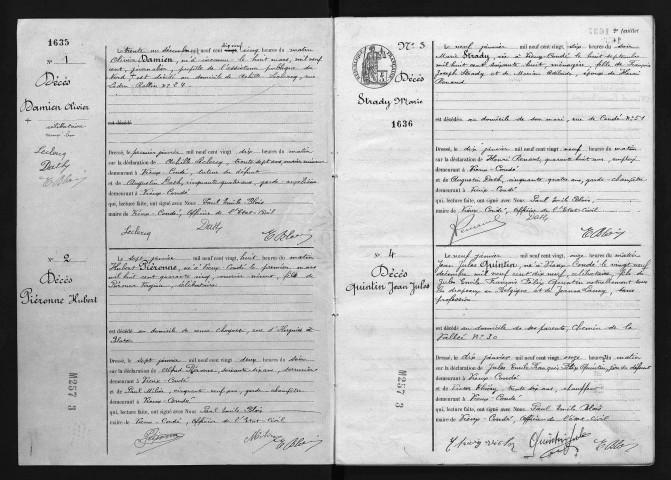 1635
N° 1
Décès
Damien Olivier
+
célibataire
Leclercq
Dath
E Blois
Le trente un décembre mil neuf cent dix neuf, cinq heures du matin
Olivier Damien, né d'inconnu le huit mars, mil neuf
cent, journalier, pupille de l'assistance publique du
Nord, est décédé au domicile de Achille Leclercq, rue
Ledru Rollin N° 24
est décédé
Dressé, le premier janvier, mil neuf cent vingt, dix heures du matin
sur la déclaration de Achille Leclercq, trente sept ans, mineur
demeurant à Vieux-Condé, tuteur du défunt
et de Augustin Dath, cinquante quatre ans, garde champêtre
demeurant à Vieux-Condé
qui, lecture faite, ont signé avec Nous Paul Emile Blois
maire de Vieux-Condé, Officier de l'Etat-Civil
Leclercq
Dath
E Blois
N° 2
Décès
Piéronne Hubert
M257 3
Le sept janvier mil neuf cent vingt, huit heures du matin
Hubert Piéronne, né à Vieux-Condé le premier mars
mil huit cent soixante cinq, ouvrier mineur, fils de
Piéronne Virginie, célibataire
est décédé au domicile de
Dressé, le sept janvier mil neuf cent vingt, deux heures du soir
sur la déclaration de Alfred Piéronne, soixante dix ans,
demeurant à Vieux-Condé
et de Paul Milon, cinquante neuf ans, garde champêtre
demeurant à Vieux-Condé
qui, lecture faite, ont signé avec Nous Paul Emile Blois
maire de Vieux-Condé, Officier de l'Etat-Civil
E Blois
2e feuillet
N° 3
Décès
Strady Marie
1636
Le neuf janvier mil neuf cent vingt, dix heures du soir
Marie Strady, née à Vieux-Condé le huit septembre
mil huit cent soixante huit, ménagère, fille de François
Joseph Strady et de Marian Adélaïde, épouse de Henri
Renard
est décédée au domicile de son mari, rue de Condé N° 51
Dressé, le dix janvier mil neuf cent vingt, neuf heures du matin
sur la déclaration de Henri Renard, quarante huit ans, employé
demeurant à Vieux-Condé
et de Augustin Dath, cinquante quatre ans, garde champêtre
demeurant à Vieux-Condé
qui, lecture faite, ont signé avec Nous Paul Emile Blois,
maire de Vieux-Condé, Officier de l'Etat-Civil
Renard
Dath
E Blois
N° 4
Décès
Quintin Jean Jules
M257 3
Le neuf janvier mil neuf cent vingt, onze heures du matin
Jean Jules Quintin, né à Vieux-Condé le vingt neuf
décembre mil neuf cent dix neuf, célibataire, fils de
Jules Emile François Félix Quintin actuellement sous
les drapeaux en Belgique et de Jeanne Lannoy, sans
profession
est décédé au domicile de ses parents, Chemin de la
Vallée N° 30
Dressé, le dix janvier mil neuf cent vingt, onze heures du matin
sur la déclaration de Jules Emile François Félix Quintin père du défunt
demeurant à Vieux-Condé
et de Victor Thiery, trente dix ans, chauffeur
demeurant à Vieux-Condé
qui, lecture faite, ont signé avec Nous Paul Emile Blois
maire de Vieux-Condé, Officier de l'Etat-Civil
Quintin Jules
E Blois